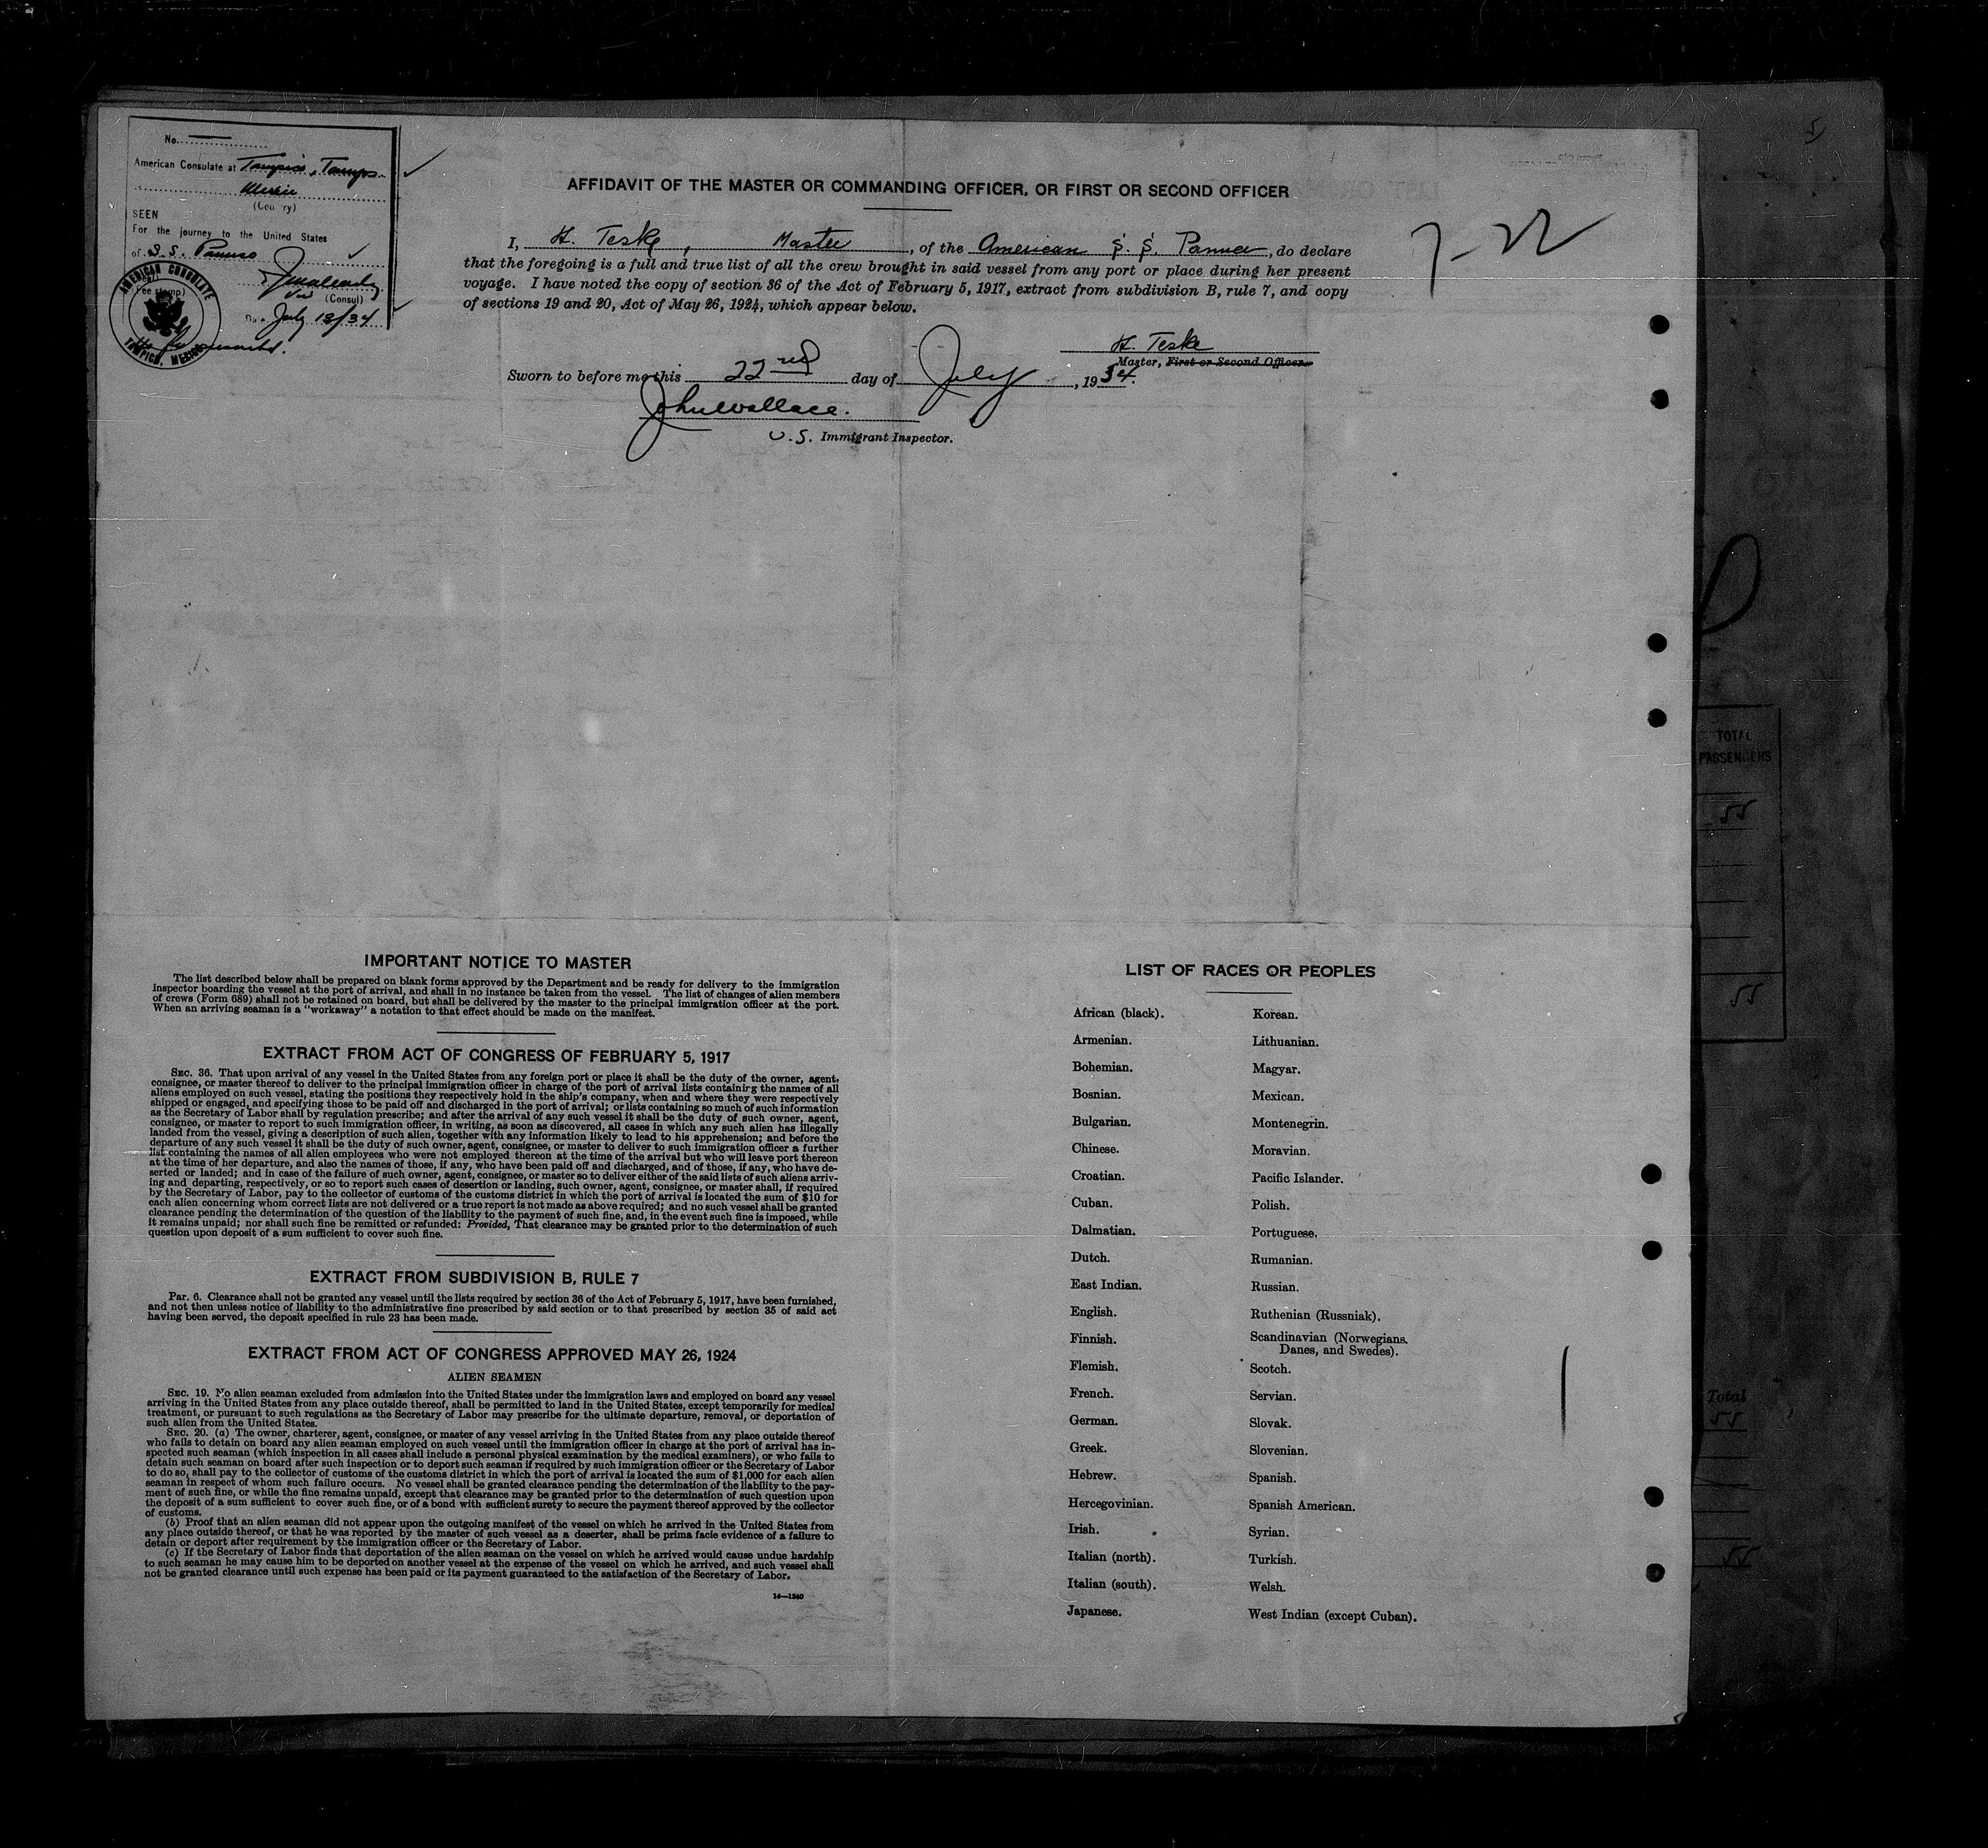 No.
American Consulate at Tampico, Tamps.
Mexico
(Country)
SEEN
For the journey to the United States
of S. S. Panuco
(Fee stamp)
Vice (Consul)
Date July 13/34
AMERICAN CONSULATE
TAMPICO, MEXICO
AFFIDAVIT OF THE MASTER OR COMMANDING OFFICER, OR FIRST OR SECOND OFFICER
7-22
I, H. Teske, Master, of the American S. S. Panuco, do declare
that the foregoing is a full and true list of all the crew brought in said vessel from any port or place during her present
voyage. I have noted the copy of section 36 of the Act of February 5, 1917, extract from subdivision B, rule 7, and copy
of sections 19 and 20, Act of May 26, 1924, which appear below.
H. Teske
Master, First or Second Officer.
Sworn to before me this 22nd day of July, 1934.
John Wallace.
U.S. Immigrant Inspector.
IMPORTANT NOTICE TO MASTER
The list described below shall be prepared on blank forms approved by the Department and be ready for delivery to the immigration
inspector boarding the vessel at the port of arrival, and shall in no instance be taken from the vessel. The list of changes of alien members
of crews (Form 689) shall not be retained on board, but shall be delivered by the master to the principal immigration officer at the port.
When an arriving seaman is a "workaway" a notation to that effect should be made on the manifest.
EXTRACT FROM ACT OF CONGRESS OF FEBRUARY 5, 1917
SEC. 36. That upon arrival of any vessel in the United States from any foreign port or place it shall be the duty of the owner, agent,
consignee, or master thereof to deliver to the principal immigration officer in charge of the port of arrival lists containing the names of all
aliens employed on such vessel, stating the positions they respectively hold in the ship's company, when and where they were respectively
shipped or engaged, and specifying those to be paid off and discharged in the port of arrival; or lists containing so much of such information
as the Secretary of Labor shall by regulation prescribe; and after the arrival of any such vessel it shall be the duty of such owner, agent,
consignee, or master to report to such immigration officer, in writing, as soon as discovered, all cases in which any such alien has illegally
landed from the vessel, giving a description of such alien, together with any information likely to lead to his apprehension; and before the
departure of any such vessel it shall be the duty of such owner, agent, consignee, or master to deliver to such immigration officer a further
list containing the names of all alien employees who were not employed thereon at the time of the arrival but who will leave port thereon
at the time of her departure, and also the names of those, if any, who have been paid off and discharged, and of those, if any, who have de-
serted or landed; and in case of the failure of such owner, agent, consignee, or master so to deliver either of the said lists of such aliens arriv-
ing and departing, respectively, or so to report such cases of desertion or landing, such owner, agent, consignee, or master shall, if required
by the Secretary of Labor, pay to the collector of customs of the customs district in which the port of arrival is located the sum of $10 for
each alien concerning whom correct lists are not delivered or a true report is not made as above required; and no such vessel shall be granted
clearance pending the determination of the question of the liability to the payment of such fine, and, in the event such fine is imposed, while
it remains unpaid; nor shall such fine be remitted or refunded: Provided, That clearance may be granted prior to the determination of such
question upon deposit of a sum sufficient to cover such fine.
EXTRACT FROM SUBDIVISION B, RULE 7
Par. 6. Clearance shall not be granted any vessel until the lists required by section 36 of the Act of February 5, 1917, have been furnished,
and not then unless notice of liability to the administrative fine prescribed by said section or to that prescribed by section 35 of said act
having been served, the deposit specified in rule 23 has been made.
EXTRACT FROM ACT OF CONGRESS APPROVED MAY 26, 1924
ALIEN SEAMEN
SEC. 19. No alien seaman excluded from admission into the United States under the immigration laws and employed on board any vessel
arriving in the United States from any place outside thereof, shall be permitted to land in the United States, except temporarily for medical
treatment, or pursuant to such regulations as the Secretary of Labor may prescribe for the ultimate departure, removal, or deportation of
such alien from the United States.
SEC. 20. (a) The owner, charterer, agent, consignee, or master of any vessel arriving in the United States from any place outside thereof
who fails to detain on board any alien seaman employed on such vessel until the immigration officer in charge at the port of arrival has in-
spected such seaman (which inspection in all cases shall include a personal physical examination by the medical examiners), or who fails to
detain such seaman on board after such inspection or to deport such seaman if required by such immigration officer or the Secretary of Labor
to do so, shall pay to the collector of customs of the customs district in which the port of arrival is located the sum of $1,000 for each alien
seaman in respect of whom such failure occurs. No vessel shall be granted clearance pending the determination of the liability to the pay-
ment of such fine, or while the fine remains unpaid, except that clearance may be granted prior to the determination of such question upon
the deposit of a sum sufficient to cover such fine, or of a bond with sufficient surety to secure the payment thereof approved by the collector
of customs.
(b) Proof that an alien seaman did not appear upon the outgoing manifest of the vessel on which he arrived in the United States from
any place outside thereof, or that he was reported by the master of such vessel as a deserter, shall be prima facie evidence of a failure to
detain or deport after requirement by the immigration officer or the Secretary of Labor.
(c) If the Secretary of Labor finds that deportation of the alien seaman on the vessel on which he arrived would cause undue hardship
to such seaman he may cause him to be deported on another vessel at the expense of the vessel on which he arrived, and such vessel shall
not be granted clearance until such expense has been paid or its payment guaranteed to the satisfaction of the Secretary of Labor.
14—1240
LIST OF RACES OR PEOPLES
African (black). Korean.
Armenian. Lithuanian.
Bohemian. Magyar.
Bosnian. Mexican.
Bulgarian. Montenegrin.
Chinese. Moravian.
Croatian. Pacific Islander.
Cuban. Polish.
Dalmatian. Portuguese.
Dutch. Rumanian.
East Indian. Russian.
English. Ruthenian (Russniak).
Finnish. Scandinavian (Norwegians,
Danes, and Swedes).
Flemish. Scotch.
French. Servian.
German. Slovak.
Greek. Slovenian.
Hebrew. Spanish.
Hercegovinian. Spanish American.
Irish. Syrian.
Italian (north). Turkish.
Italian (south). Welsh.
Japanese. West Indian (except Cuban).
5
TOTAL
PASSENGERS
55
55
Total
55
55